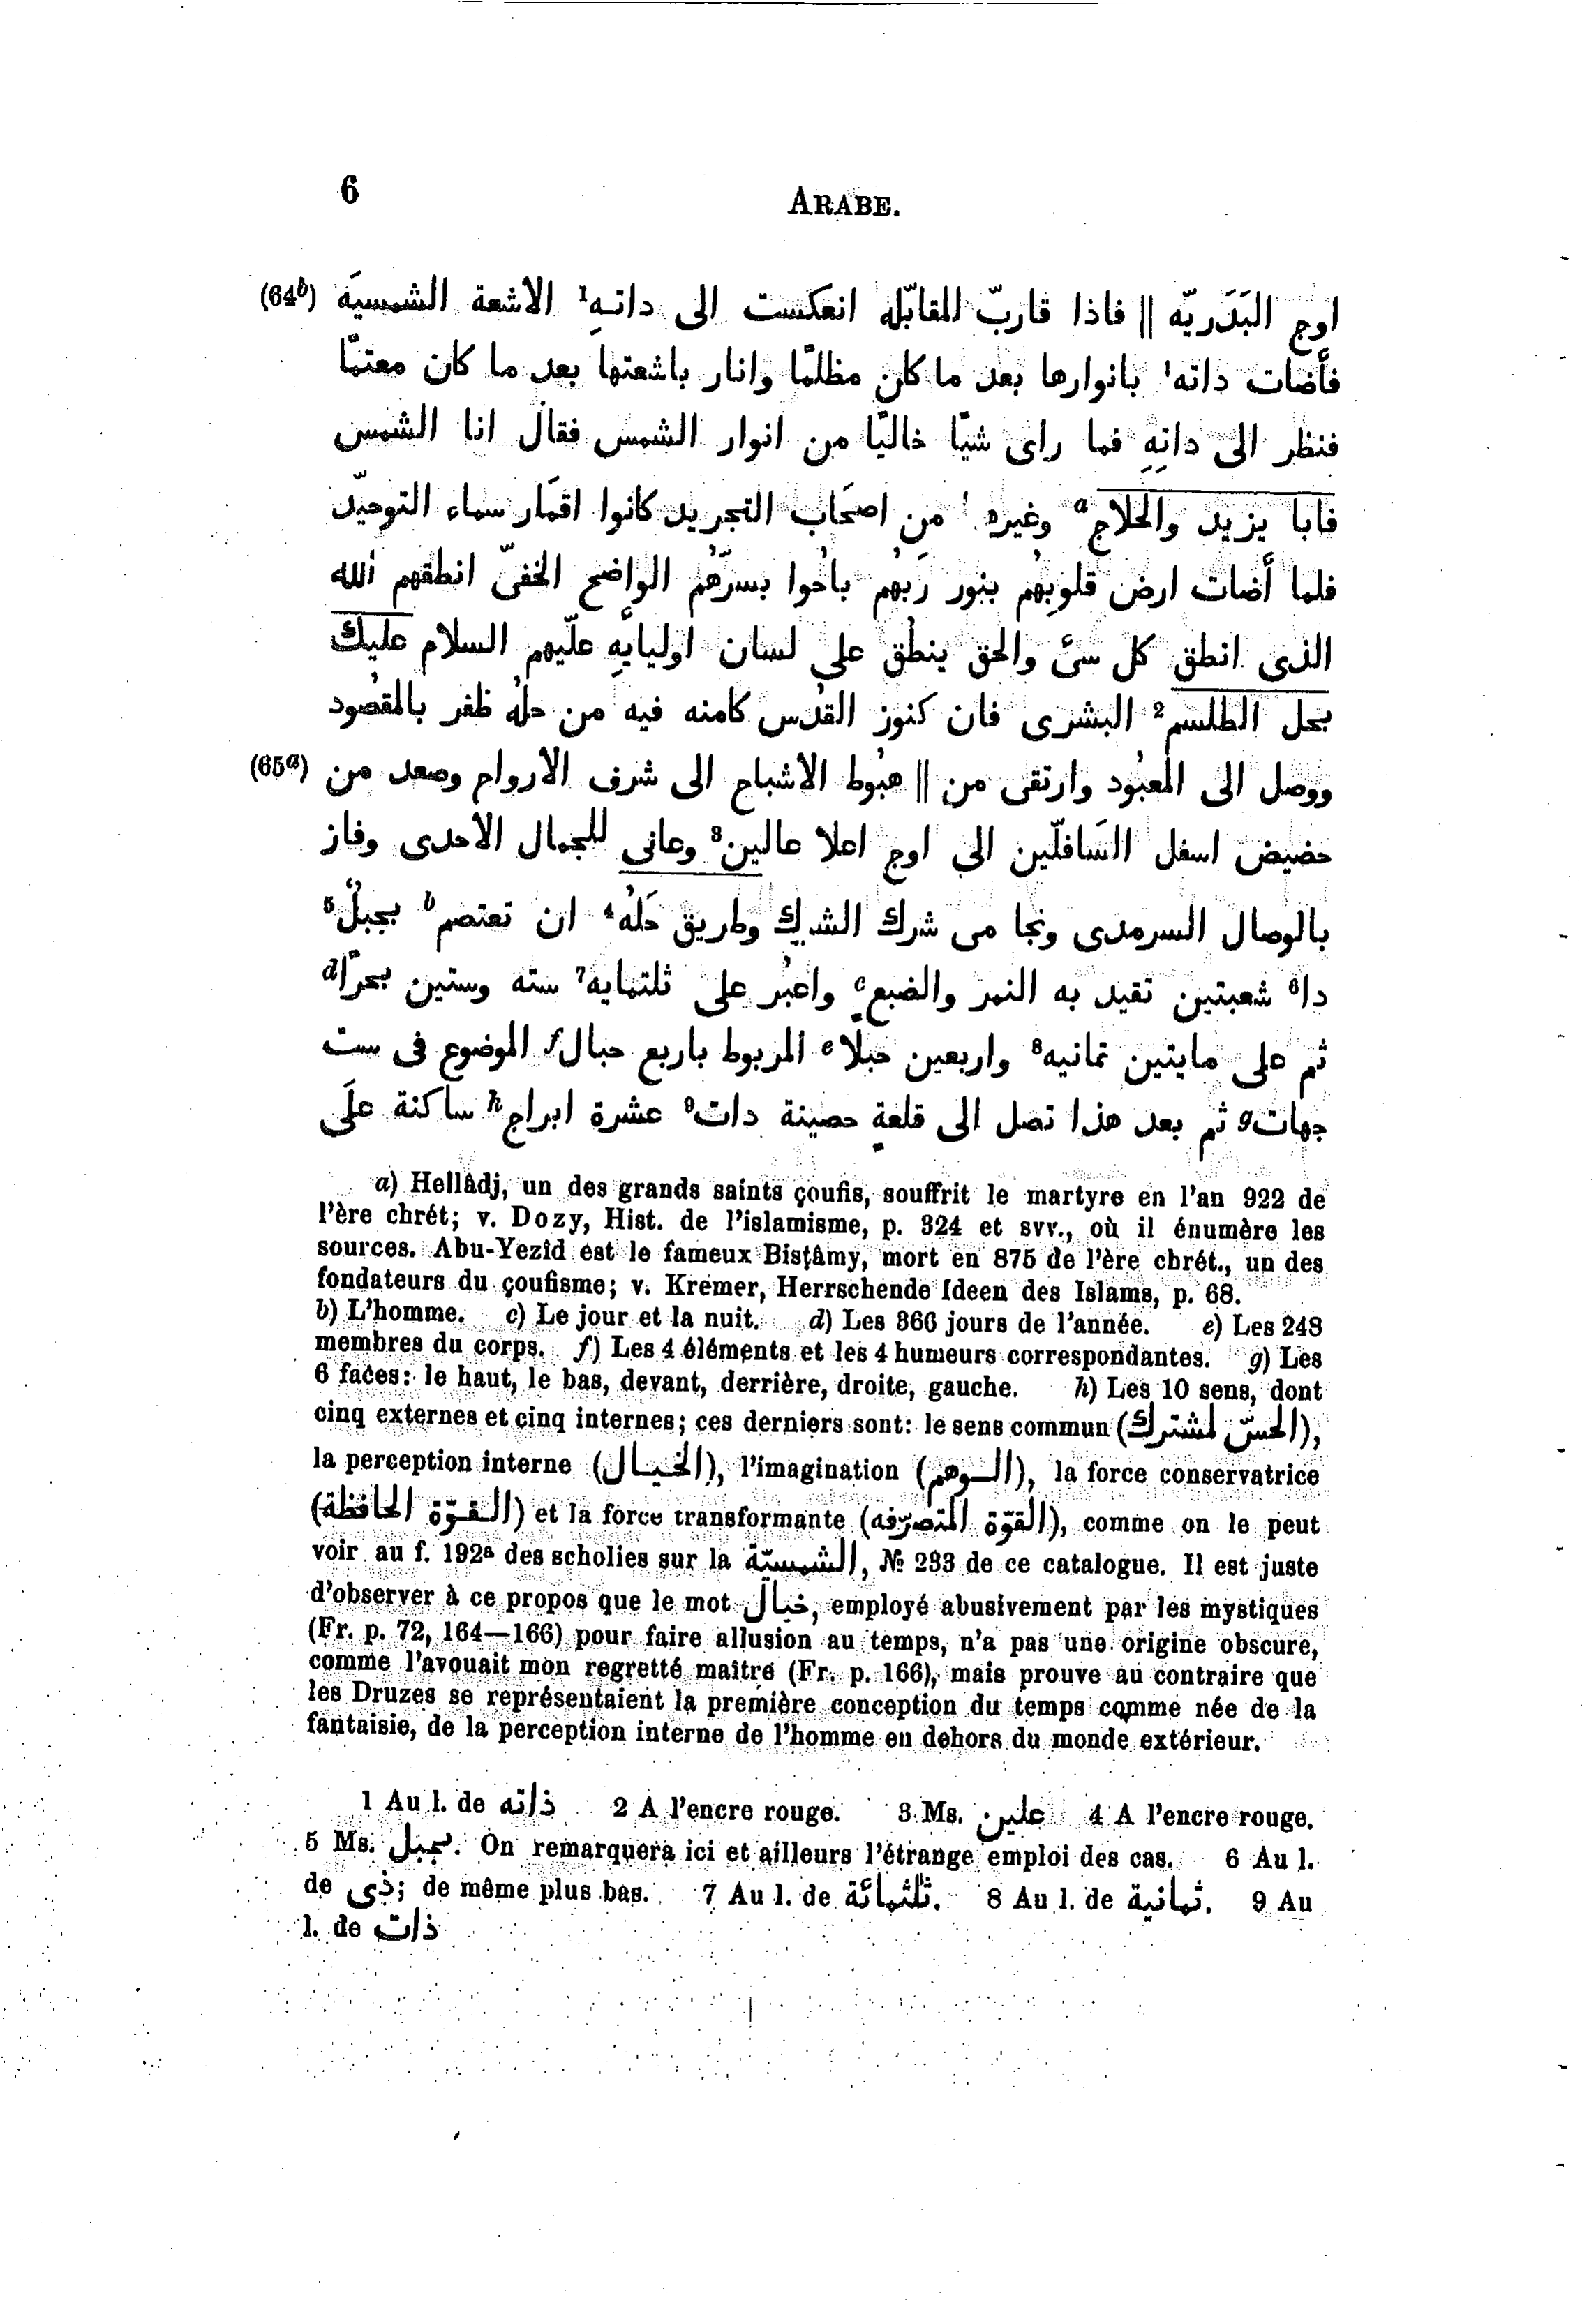 6
ARABE.
اوج البَدَريّه || فاذا قاربّ المقابّله انعكست الى داتـهِ¹ الاشعة الشمسيَه (64ᵇ)
فأَضات داته¹ بانوارها بعد ما كان مظلمًا وانار باشعتها بعد ما كان معتمًا
فنظر الى داتِهِ فما راى شيًا خاليًا من انوار الشمس فقال انا الشمس
فابا يزيد والحلاجᵃ وغيره من اصحَاب التجريد كانوا اقمَار سماء التوحيّد
فلما أَضات ارض قلوبهُم بنور رَبهُم باحُوا بسرّهُم الواضح الخفىّ انطقهم الله
الذى انطق كل شئ والحق ينطق على لسان اوليايَهِ علّيهم السلام عليك
بحل الطلسم² البشرى فان كنوز القدُس كامنه فيه من حلهُ ظفر بالمقصُود
ووصل الى المعبُود وارتقى من || هبُوط الاشباح الى شرف الارواح وصعد من (65ᵃ)
حضيض اسفل السَافلّين الى اوج اعلا عالين³ وعانى للجمال الاحدى وفاز
بالوصال السرمدى ونجا من شرك الشرك وطريق حَلهُ⁴ ان تعتصمᵇ بجبلٌ⁵
دا⁶ شعبتين تقيد به النمر والضبعᶜ واعبُر على ثلتمايه⁷ سته وستين بحرًاᵈ
ثم على مايتين تمانيه⁸ واربعين حبلًاᵉ المربوط باربع حبالᶠ الموضوع فى ست
جهاتᵍ ثم بعد هذا تصل الى قلعةٍ حصينة دات⁹ عشرة ابراجʰ ساكنة علَى
a) Hellâdj, un des grands saints çoufis, souffrit le martyre en l'an 922 de
l'ère chrét; v. Dozy, Hist. de l'islamisme, p. 324 et svv., où il énumère les
sources. Abu-Yezîd est le fameux Bisṭâmy, mort en 875 de l'ère chrét., un des
fondateurs du çoufisme; v. Kremer, Herrschende Ideen des Islams, p. 68.
b) L'homme. c) Le jour et la nuit. d) Les 366 jours de l'année. e) Les 248
membres du corps. f) Les 4 éléments et les 4 humeurs correspondantes. g) Les
6 faces: le haut, le bas, devant, derrière, droite, gauche. h) Les 10 sens, dont
cinq externes et cinq internes; ces derniers sont: le sens commun (الحسّ لمشترك),
la perception interne (الخيال), l'imagination (الوهم), la force conservatrice
(القوّة الحافظة) et la force transformante (القوّة المتصرّفه), comme on le peut
voir au f. 192ᵃ des scholies sur la الشمسيّة, № 233 de ce catalogue. Il est juste
d'observer à ce propos que le mot خيال, employé abusivement par les mystiques
(Fr. p. 72, 164—166) pour faire allusion au temps, n'a pas une origine obscure,
comme l'avouait mon regretté maître (Fr. p. 166), mais prouve au contraire que
les Druzes se représentaient la première conception du temps comme née de la
fantaisie, de la perception interne de l'homme en dehors du monde extérieur.
1 Au l. de ذاته 2 A l'encre rouge. 3 Ms. علين 4 A l'encre rouge.
5 Ms. بجبل. On remarquera ici et ailleurs l'étrange emploi des cas. 6 Au l.
de ذى; de même plus bas. 7 Au l. de ثلثمائة. 8 Au l. de ثمانية. 9 Au
l. de ذات